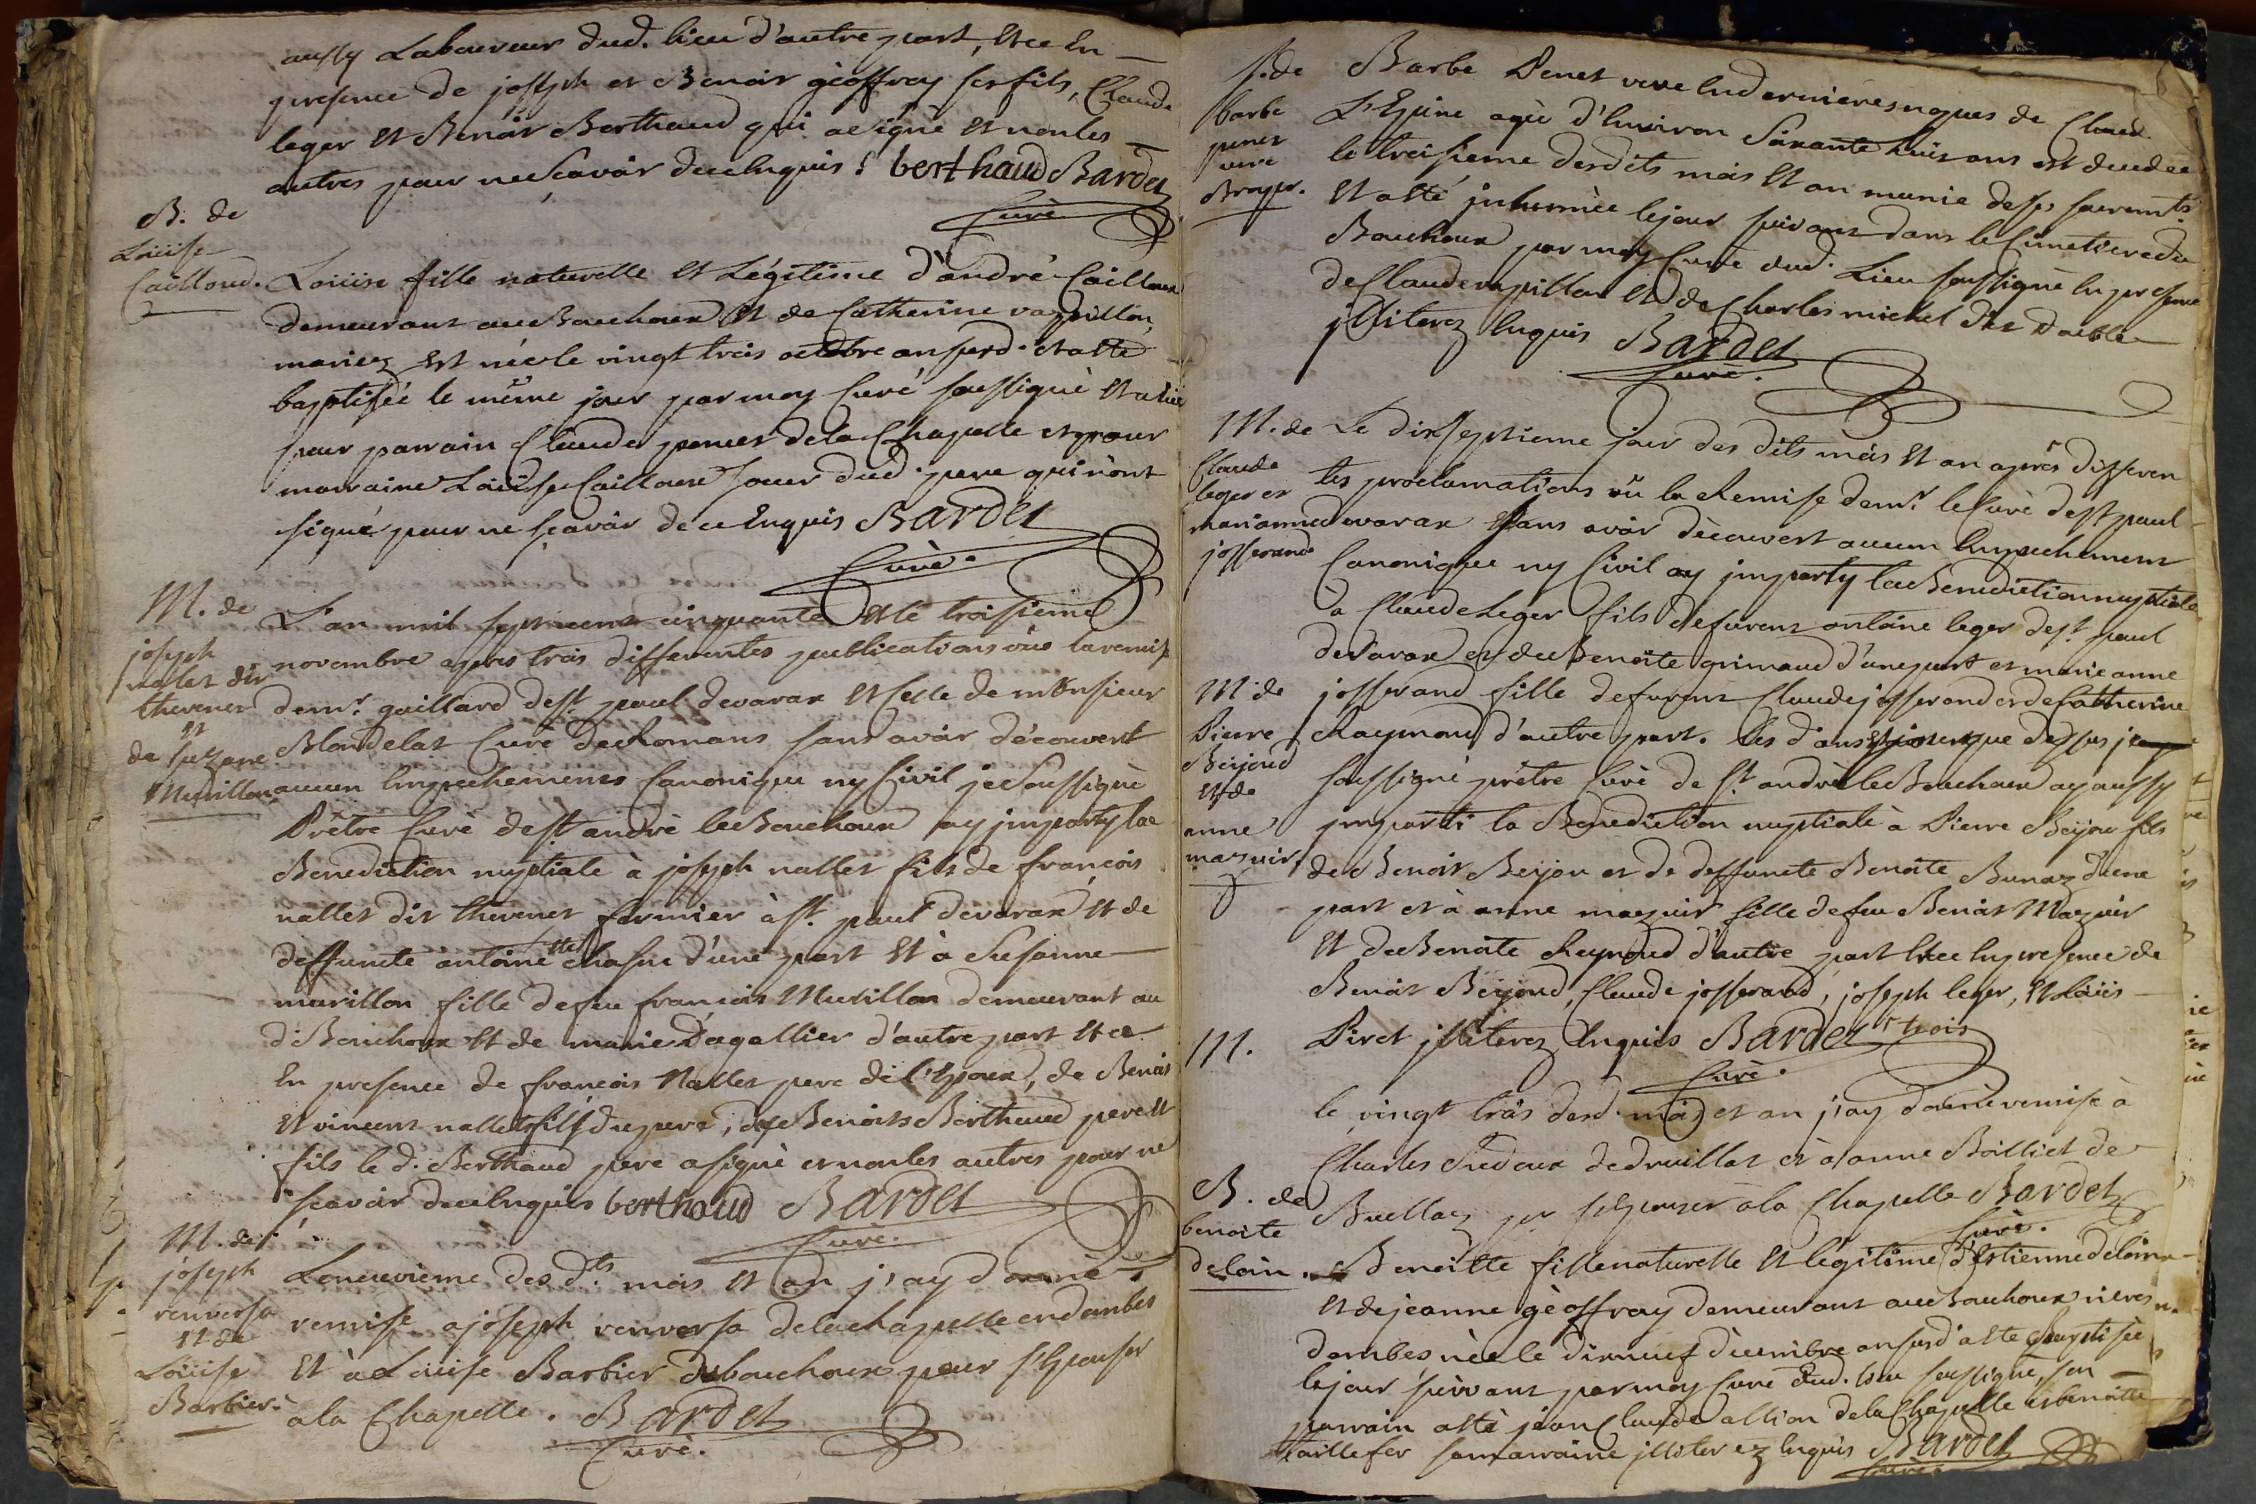 aussy Laboureur dud. lieu d'autre part, et ce En
presence de joseph et Benoit géoffray ses fils, Claude
leger et Benoit Berthaud qui a signé et non les
autres pour ne sçavoir de ce Enquis berthaud Bardet
Curé
B. de
Loüise
Cailloud.
Loüise fille naturelle et Légitime d'andré Cailloux
demeurant au Bouchoux et de Catherine vapillon,
mariez est née le vingt trois octobre an susd. et a esté
baptisée le même jour par moy Curé soussigné et a eu
pour parrain Claude penet de la Chapelle et pour
marraine Loüise Cailloux soeur dud. pere qui n'ont
signé pour ne sçavoir de ce Enquis Bardet
Curé.
M. de
joseph
nallet dit
thevenet
et
de suzane
Murillon
L'an mil sept cent cinquante et le troisieme
novembre apres trois differentes publications vüe la remise
de mr. gaillard de st. paul de varax et celle de monsieur
Blondelat Curé de Romans sans avoir découvert
aucun Empechements Canonique ny Civil je soussigné
Prêtre Curé de st andré le Bouchoux ay imparty la
Benediction nuptiale à joseph nallet fils de françois
nallet dit thevenet fermier à st. paul de varax et de
deffuncte antoinette chasne d'une part et à Susanne
murillon fille de feu françois Murillon demeurant au
d. Bouchoux et de marie Dagallier d'autre part et ce
En presence de françois Nallet pere de l'Epoux, de Benoit
et vincent nallet fils du pere, de Benoits Berthaud pere et
fils le d. Berthaud pere a signé et non les autres pour ne
sçavoir de ce Enquis berthaud Bardet
Curé.
M. de
joseph
renversa
et de
Loüise
Barbier.
Le neuvieme des dts. mois et an j'ay donné
remise a joseph renversa de la chapelle en dombes
et à Loüise Barbier du bouchoux pour s'Epouser
a la Chapelle. Bardet
Curé.
S. de
barbe
penet
veve
Broyer.
Barbe Penet veve En dernieres nopces de Claud
L'Epine agée d'Environ Soixante huit ans est decedée
le treisieme desdits mois et an munie de ses sacremts
et a esté inhumée le jour suivant dans le Cimetiere du
Bouchoux par moy Curé dud. Lieu soussigné En presence
de Claude vapillon et de Charles michel dit Daible
illiterez Enquis Bardet
Curé.
M. de
Claude
leger et
marianne
josserand
Le dix septieme jour des dits mois et an aprés differen
tes proclamations vü la Remise de mr. le Curé de st paul
de varax et sans avoir découvert aucun Empechement
Canonique ny Civil ay imparty la Benediction nuptiale
à Claude Leger fils de furent antoine leger de st. paul
de Varax et de Benoite grimaud d'une part et marie anne
josserand fille de furent Claude josserand et de Catherine
Raymond d'autre part.
M. de
Pierre
Beijoud
et de
anne
mazuir.
Les d'ans et jour que dessus je
soussigné prêtre Curé de st. andré le Bouchoux ay aussy
imparti la Benediction nuptiale à Pierre Beijou fils
de Benoit Beijou et de deffuncte Benoite Bunaz d'une
part et à anne mazuir fille de feu Benoit Mazuir
et de Benoite Reynoud d'autre part et ce En presence de
Benoit Beijoud, Claude josserand, joseph leger, et Loüis
Piret illiterez Enquis Bardet
Curé.
M.
le vingt trois desd. mois et an j'ay donné remise à
Charles Sudoux de druillat et à anne Boilliet de
Buellaz pr s'Epouser à la Chapelle Bardet
Curé.
B. de
benoite
deloin.
Benoitte fille naturelle et legitime d'Estienne deloin
et de jeanne géoffray demeurant au Bouchoux rieres
dombes née le dixneuf décembre an susd. a esté Baptisée
le jour suivant par moy Curé dud. lieu soussigné, son
parrain a esté jean Claude allion de la Chapelle et benoitte
taillefer sa marraine illiterez Enquis Bardet
Curé.